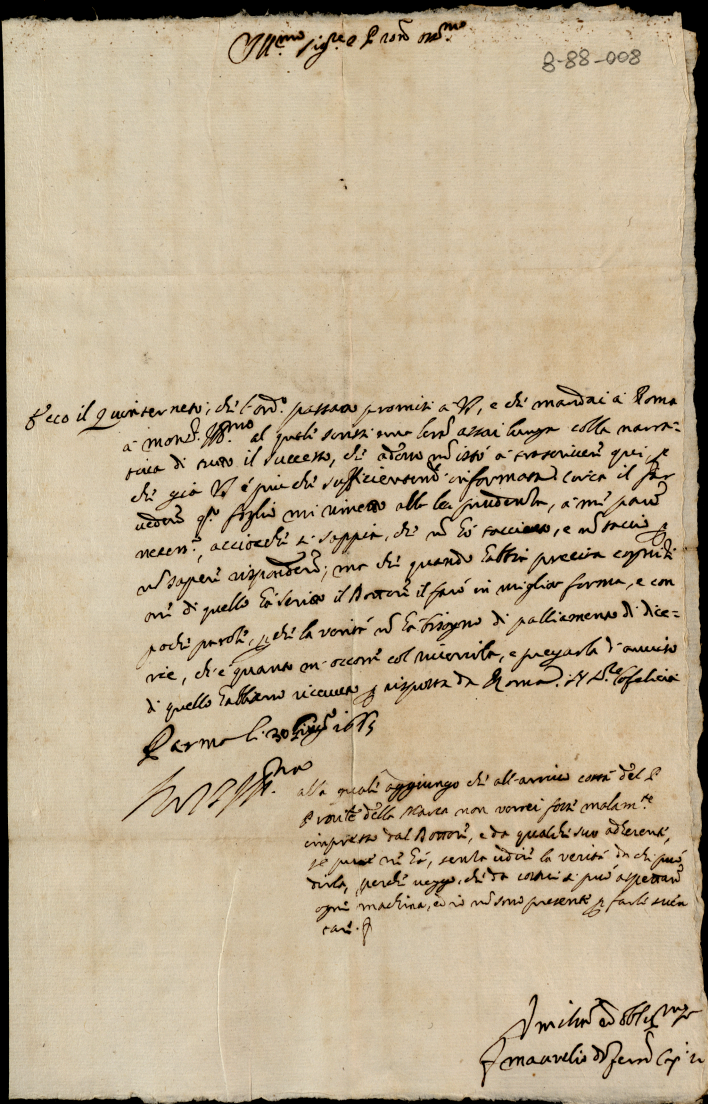 Ill.mo Sig.re e P.ron Oss.mo
8-88-008
Ecco il Quinterneto, che l'ord.o passato promisi à V.S, e che mandai à Roma
à Mons.r Ill.mo al quale scrissi una lett.a assai lunga colla narra-
tiva di tutto il successo, che adesso nõ istò à trascrivere qui,
che già V.S è piu che sufficientem.te informata. Circa il far
vedere q.o foglio mi rimetto alla sua prudenza, à me pare
necess.o, acciochè si sappia, che nõ hò tacciuto, e nõ taccio p
nõ sapere rispondere; ma che quando habbia precisa
di quello hà scritto il Dottore il farò in miglior forma, e con
poche parole, p che la verità nõ hà bisogno di palliamento di dice-
rie, che è quanto m'occorre col riverirla, e pregarla d'avviso
di quello habbiamo ricevuto p risposta da Roma.
Parma li 30 1665
alla quale aggiungo che all'arrivo costà del P
della Marca non vorrei fosse malam.te
impresso dal Dottore, e da qualche suo adherente,
se pure nõ hà, senza udire la verità da chi può
dirla, perche veggo, che da costui si può aspettare
ogni machina, ed io nõ sono presente p farle
care.
Humiliss.o ed Obblig.mo
F Maurelio da Ferr.a Cap.no